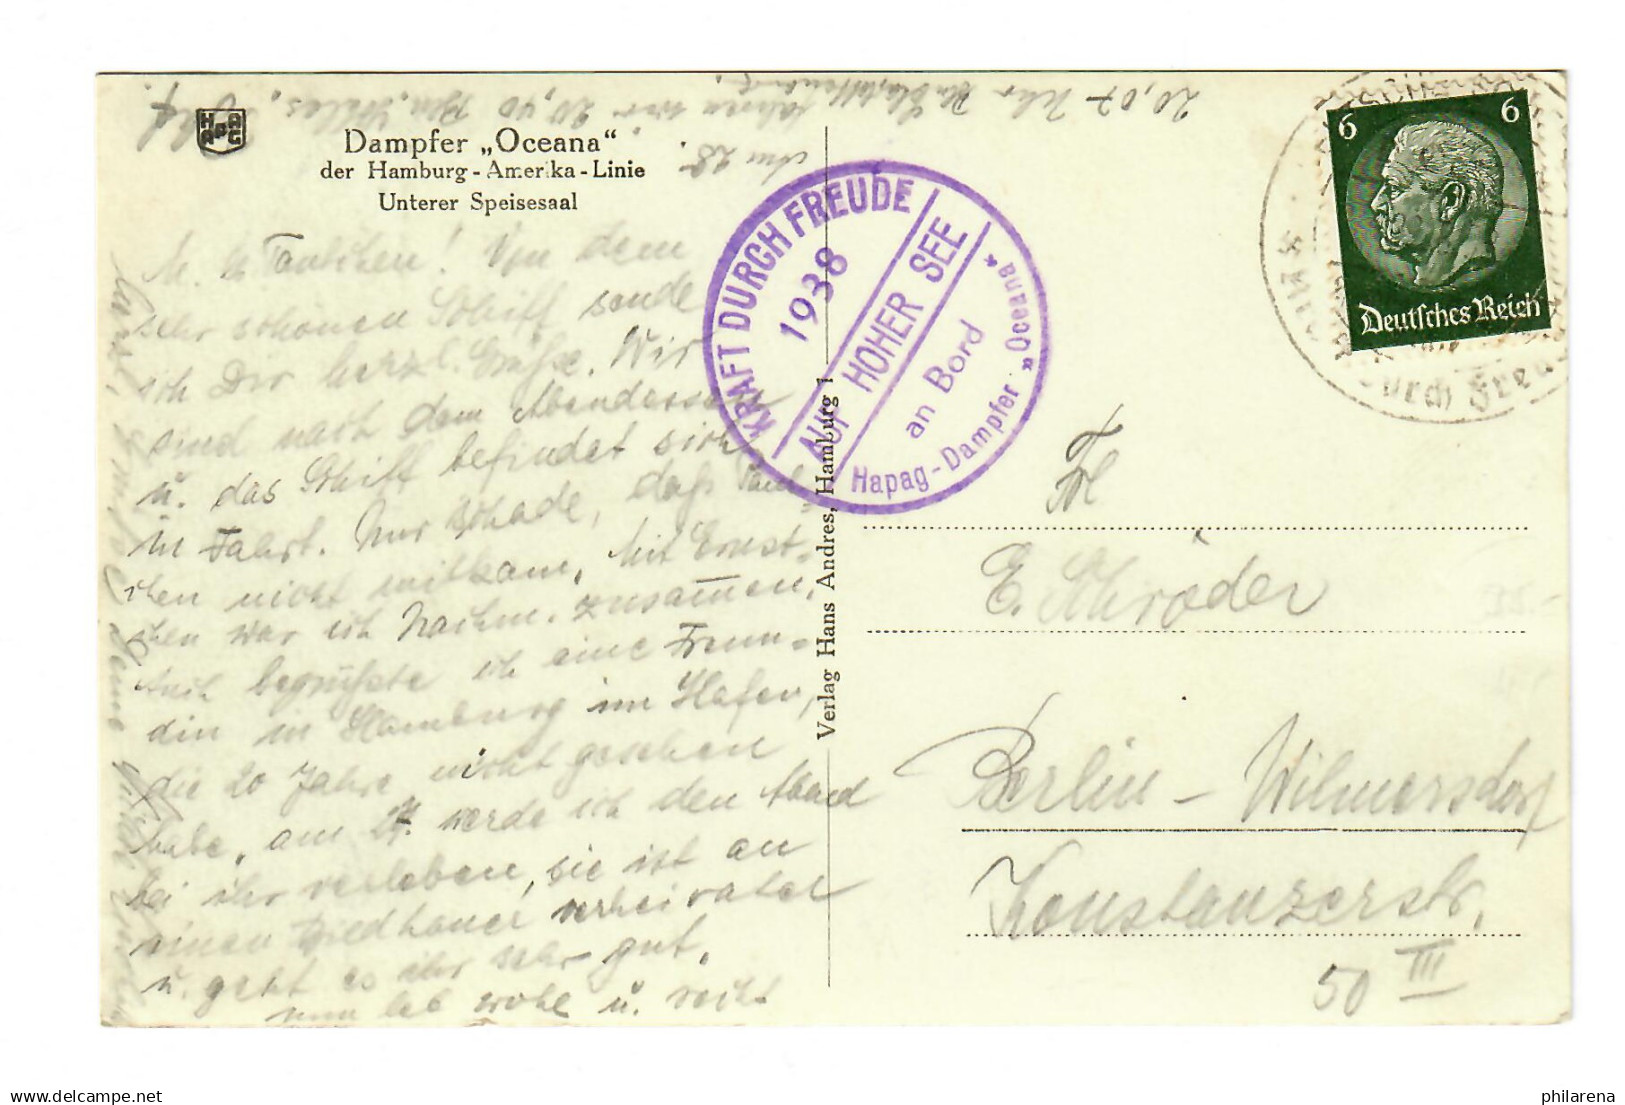 HAPAG
Dampfer „Oceana“
der Hamburg-Amerika-Linie
Unterer Speisesaal
Von dem
sehr schönen Schiff sende
ich Dir herzl. Grüße. Wir
sind nach dem Abendessen
u. das Schiff befindet sich
in Fahrt. Nur schade, daß
chen nicht mitkam, mit Ernst-
chen war ich Nachm. zusammen,
Auch begrüßte ich eine Freun-
din in Hamburg im Hafen,
die 20 Jahre nicht gesehen
habe, am 27. werde ich den Abend
bei ihr verleben, sie ist an
einen verheiratet
u. geht es ihr sehr gut.
nun leb wohl u. recht
Am 28.
20,07 Uhr
20,40
Alles
KRAFT DURCH FREUDE
1938
AUF HOHER SEE
an Bord
Hapag-Dampfer „Oceana“
Verlag Hans Andres, Hamburg 1
6 6
Deutsches Reich
durch Freu
Frl
E. Schröder
Berlin - Wilmersdorf
Konstanzerstr.
50 III
philarena.com